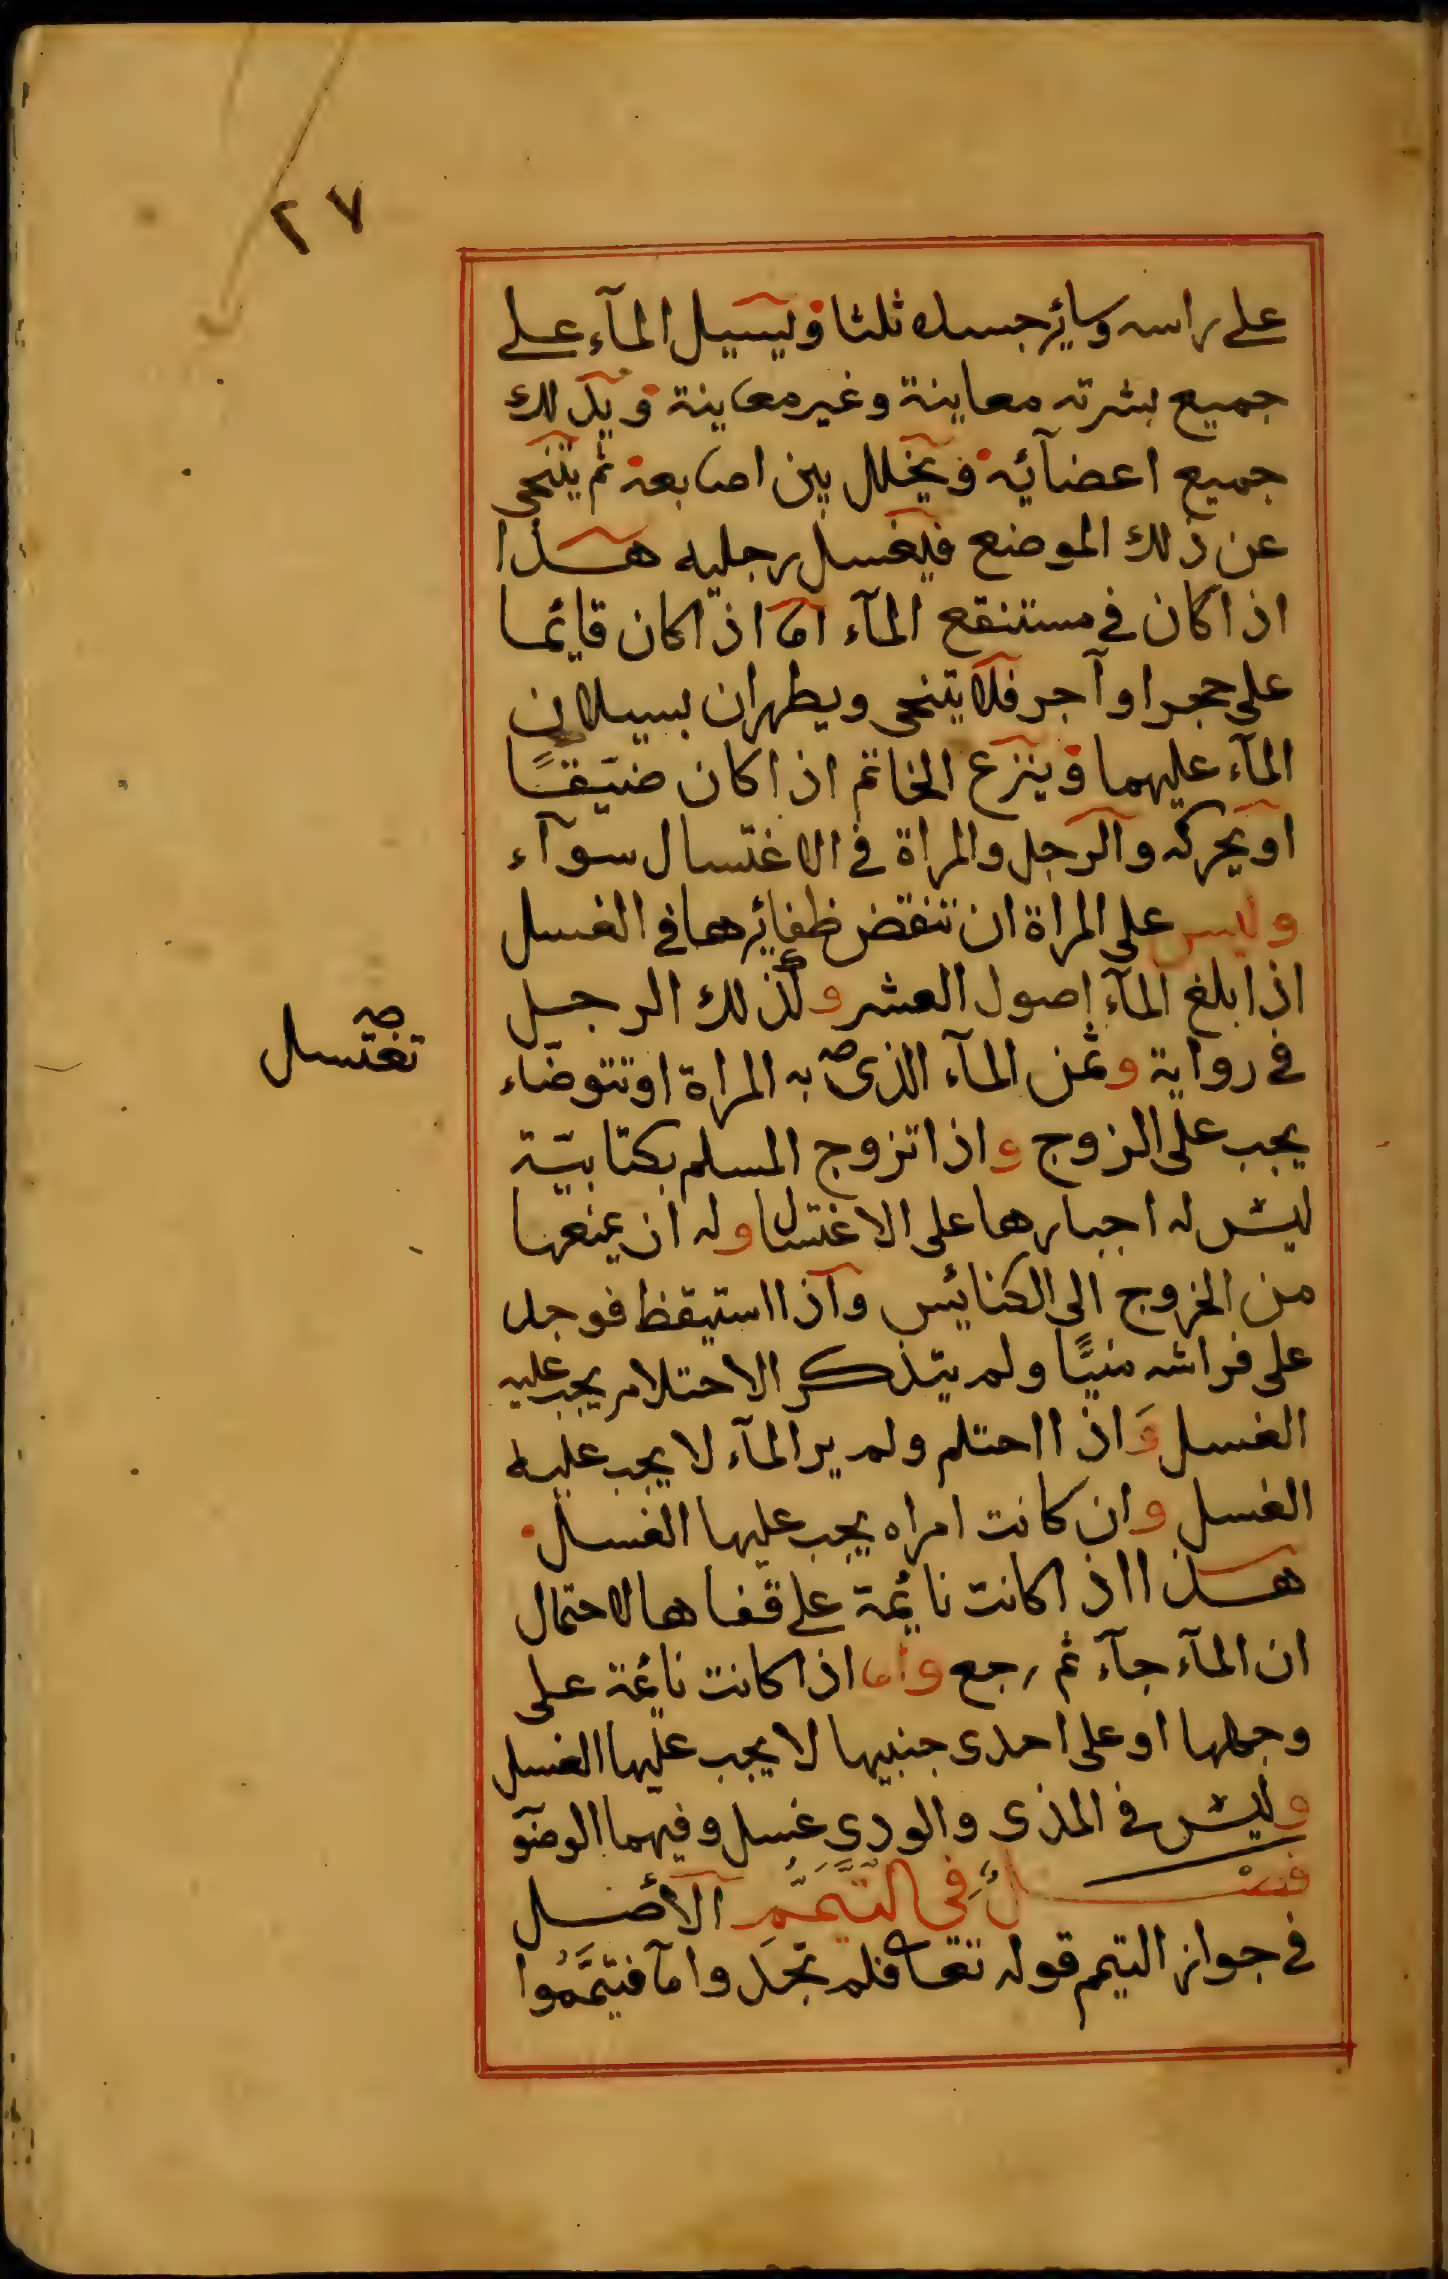 ٢٧
على راسه وسائر جسده ثلثا ويسيل المآء على
جميع بشرته معاينة وغير معاينة ويدلك
جميع اعضآئه ويخلل بين اصابعه ثم يتنحى
عن ذلك الموضع فيغسل رجليه هذا
اذا كان فى مستنقع المآء اما اذا كان قائما
على حجر او آجر فلا يتنحى ويطهران بسيلان
المآء عليهما وينزع الخاتم اذا كان ضيّقًا
او يحركه والرجل والمراة فى الاغتسال سوآء
وليس على المراة ان تنقض ظفائرها فى الغسل
اذا بلغ المآء اصول الشعر وكذلك الرجل
فى رواية وثمن المآء الذى به المراة او تتوضاء
تغتسل صح
يجب على الزوج واذا تزوج المسلم بكتابيّة
ليس له اجبارها على الاغتسال وله ان يمنعها
من الخروج الى الكنائس واذا استيقظ فوجد
على فراشه منيًّا ولم يتذكر الاحتلام يجب عليه
الغسل وَاذا احتلم ولم ير المآء لا يجب عليه
الغسل وان كانت امراه يجب عليها الغسل
هذا اذا كانت نائمة على قفاها لاحتمال
ان المآء جآء ثم رجع واما اذا كانت نائمة على
وجهها او على احدى جنبيها لا يجب عليها الغسل
وليس فى المذى والودى غسل وفيهما الوضؤ
فصلٌ فِى التَّيَمُّمِ الأصل
فى جواز التيمم قوله تعا فلم تجدوا مآ فتيمَّمُوا